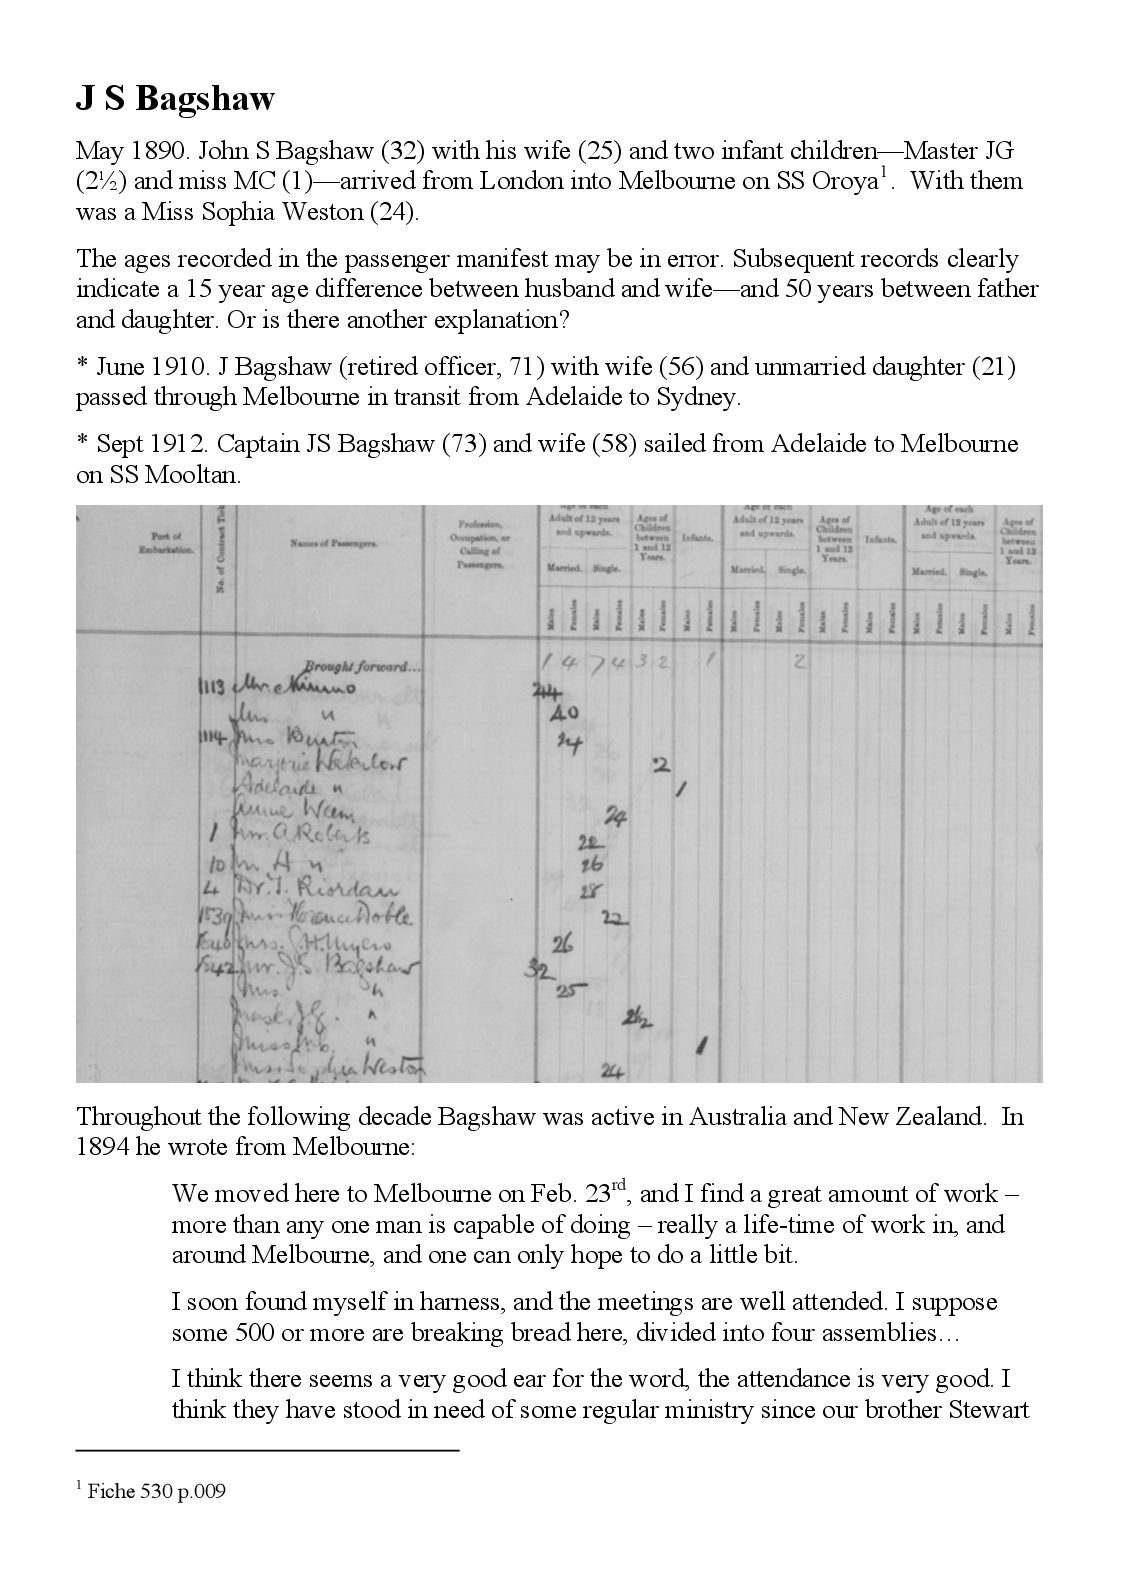 J S Bagshaw
May 1890. John S Bagshaw (32) with his wife (25) and two infant children—Master JG
(2½) and miss MC (1)—arrived from London into Melbourne on SS Oroya1.  With them
was a Miss Sophia Weston (24).
The ages recorded in the passenger manifest may be in error. Subsequent records clearly
indicate a 15 year age difference between husband and wife—and 50 years between father
and daughter. Or is there another explanation?
* June 1910. J Bagshaw (retired officer, 71) with wife (56) and unmarried daughter (21)
passed through Melbourne in transit from Adelaide to Sydney.
* Sept 1912. Captain JS Bagshaw (73) and wife (58) sailed from Adelaide to Melbourne
on SS Mooltan.
Port of Embarkation. No. of Contract Names of Passengers. Profession, Occupation, or Calling of Passengers.
Age of each Adult of 12 years and upwards. Ages of Children between 1 and 12 Years. Infants.
Age of each Adult of 12 years and upwards. Ages of Children between 1 and 12 Years. Infants.
Age of each Adult of 12 years and upwards. Ages of Children between 1 and 12 Years.
Married. Single. Married. Single. Married. Single.
Males Females Males Females Males Females Males Females Males Females Males Females Males Females Males Females Males Females Males Females Males Females
Brought forward... 1 4 7 4 3 2 1 2
1113 Mr. 44
" 40
1114 24
Marjorie Waterlow 2
Adelaide " 1
Annie 24
1 Mr. A Roberts 22
10 Mr H " 26
4 Dr. J. Riordan 28
1539 Miss Florence Doble 22
Mrs. J.H. Myers 26
1542 Mr. J.S. Bagshaw 32
Mrs. " 25
Mast. J.G. " 2½
Miss M.C. " 1
Miss Sophia Weston 24
Throughout the following decade Bagshaw was active in Australia and New Zealand.  In
1894 he wrote from Melbourne:
We moved here to Melbourne on Feb. 23rd, and I find a great amount of work –
more than any one man is capable of doing – really a life-time of work in, and
around Melbourne, and one can only hope to do a little bit.
I soon found myself in harness, and the meetings are well attended. I suppose
some 500 or more are breaking bread here, divided into four assemblies…
I think there seems a very good ear for the word, the attendance is very good. I
think they have stood in need of some regular ministry since our brother Stewart
1 Fiche 530 p.009